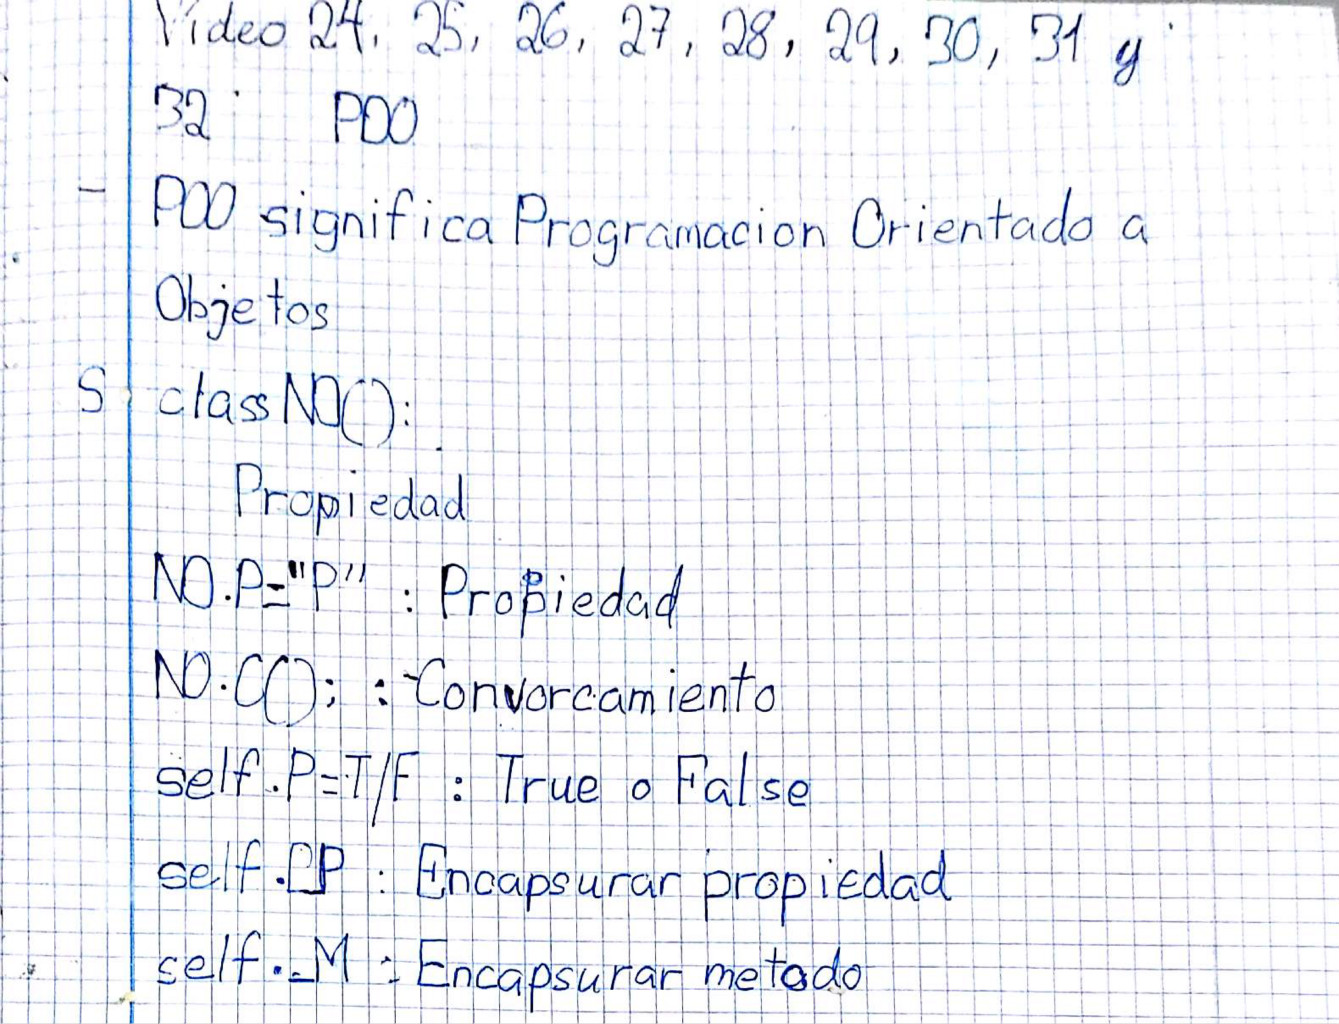 Video 24, 25, 26, 27, 28, 29, 30, 31 y
32 POO
- POO significa Programacion Orientado a
Objetos
S class NO():
Propiedad
NO.P="P" : Propiedad
NO.C(); : Convorcamiento
self.P=T/F : True o False
self. P : Encapsurar propiedad
self._M : Encapsurar metodo